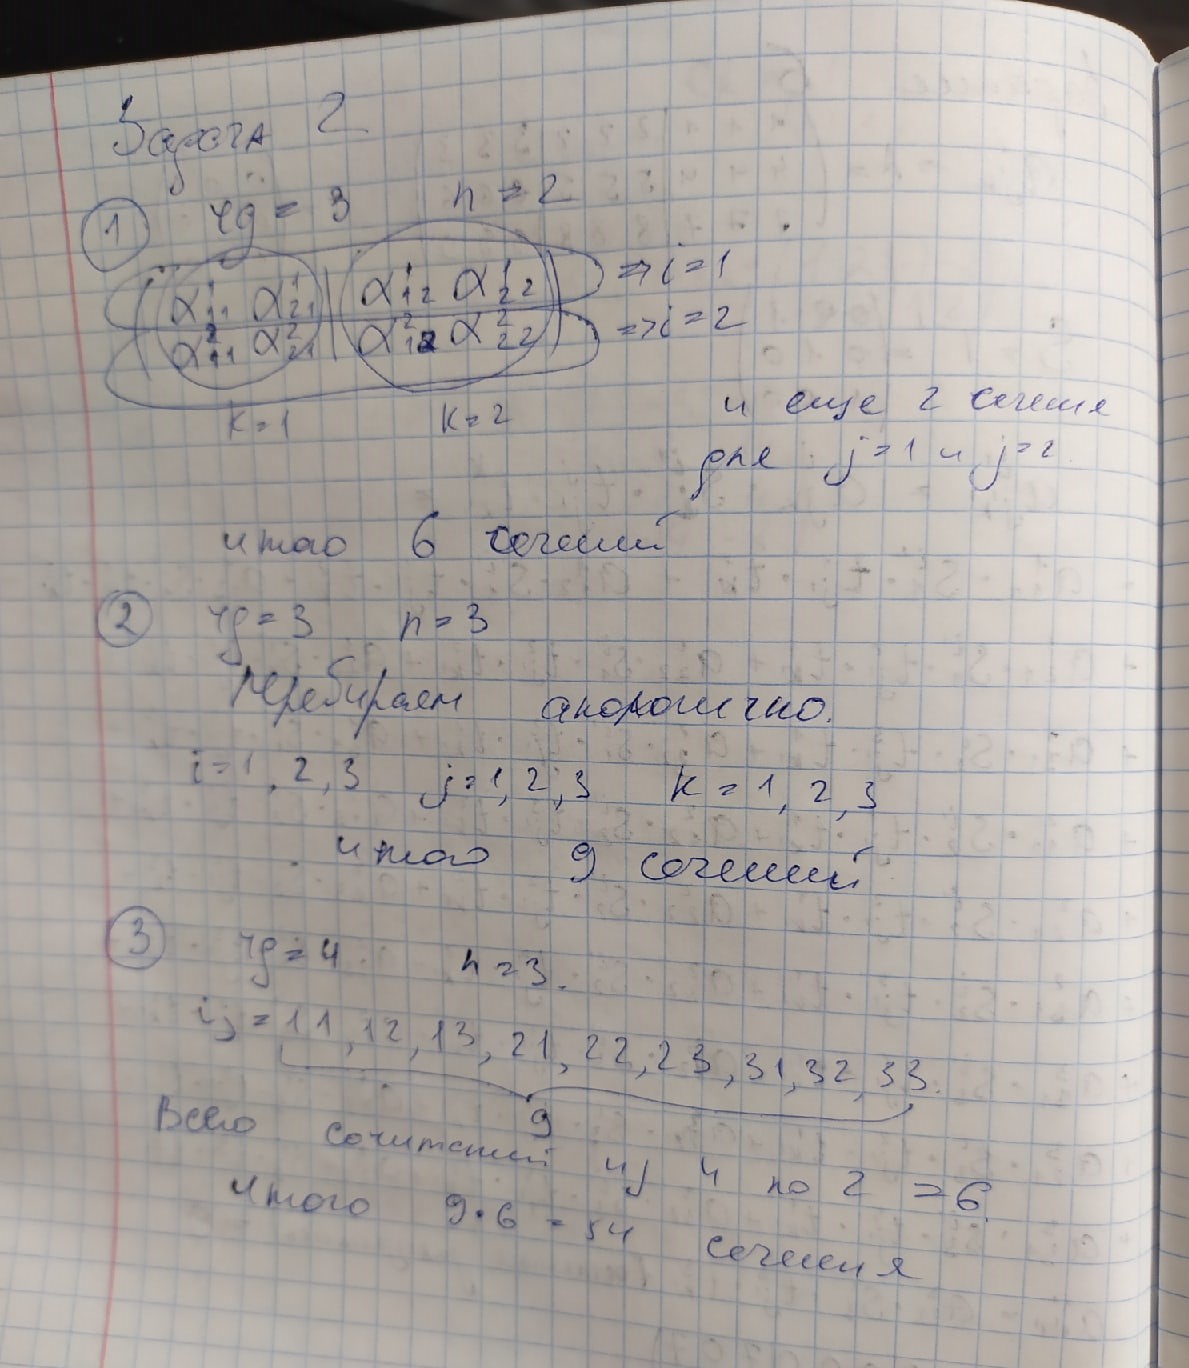 Задача 2
① rg = 3 n = 2
( α¹₁₁ α¹₂₁ | α¹₁₂ α¹₂₂ ) => i = 1
( α²₁₁ α²₂₁ | α²₁₂ α²₂₂ ) => i = 2
K = 1 K = 2
и еще 2 сечения
для j = 1 и j = 2
итого 6 сечений
② rg = 3 n = 3
Перебираем аналогично.
i = 1, 2, 3 j = 1, 2, 3 K = 1, 2, 3
итого 9 сечений
③ rg = 4 n = 3.
ij = 11, 12, 13, 21, 22, 23, 31, 32, 33.
9
Всего сочитаний из 4 по 2 = 6.
Итого 9 · 6 = 54 сечения